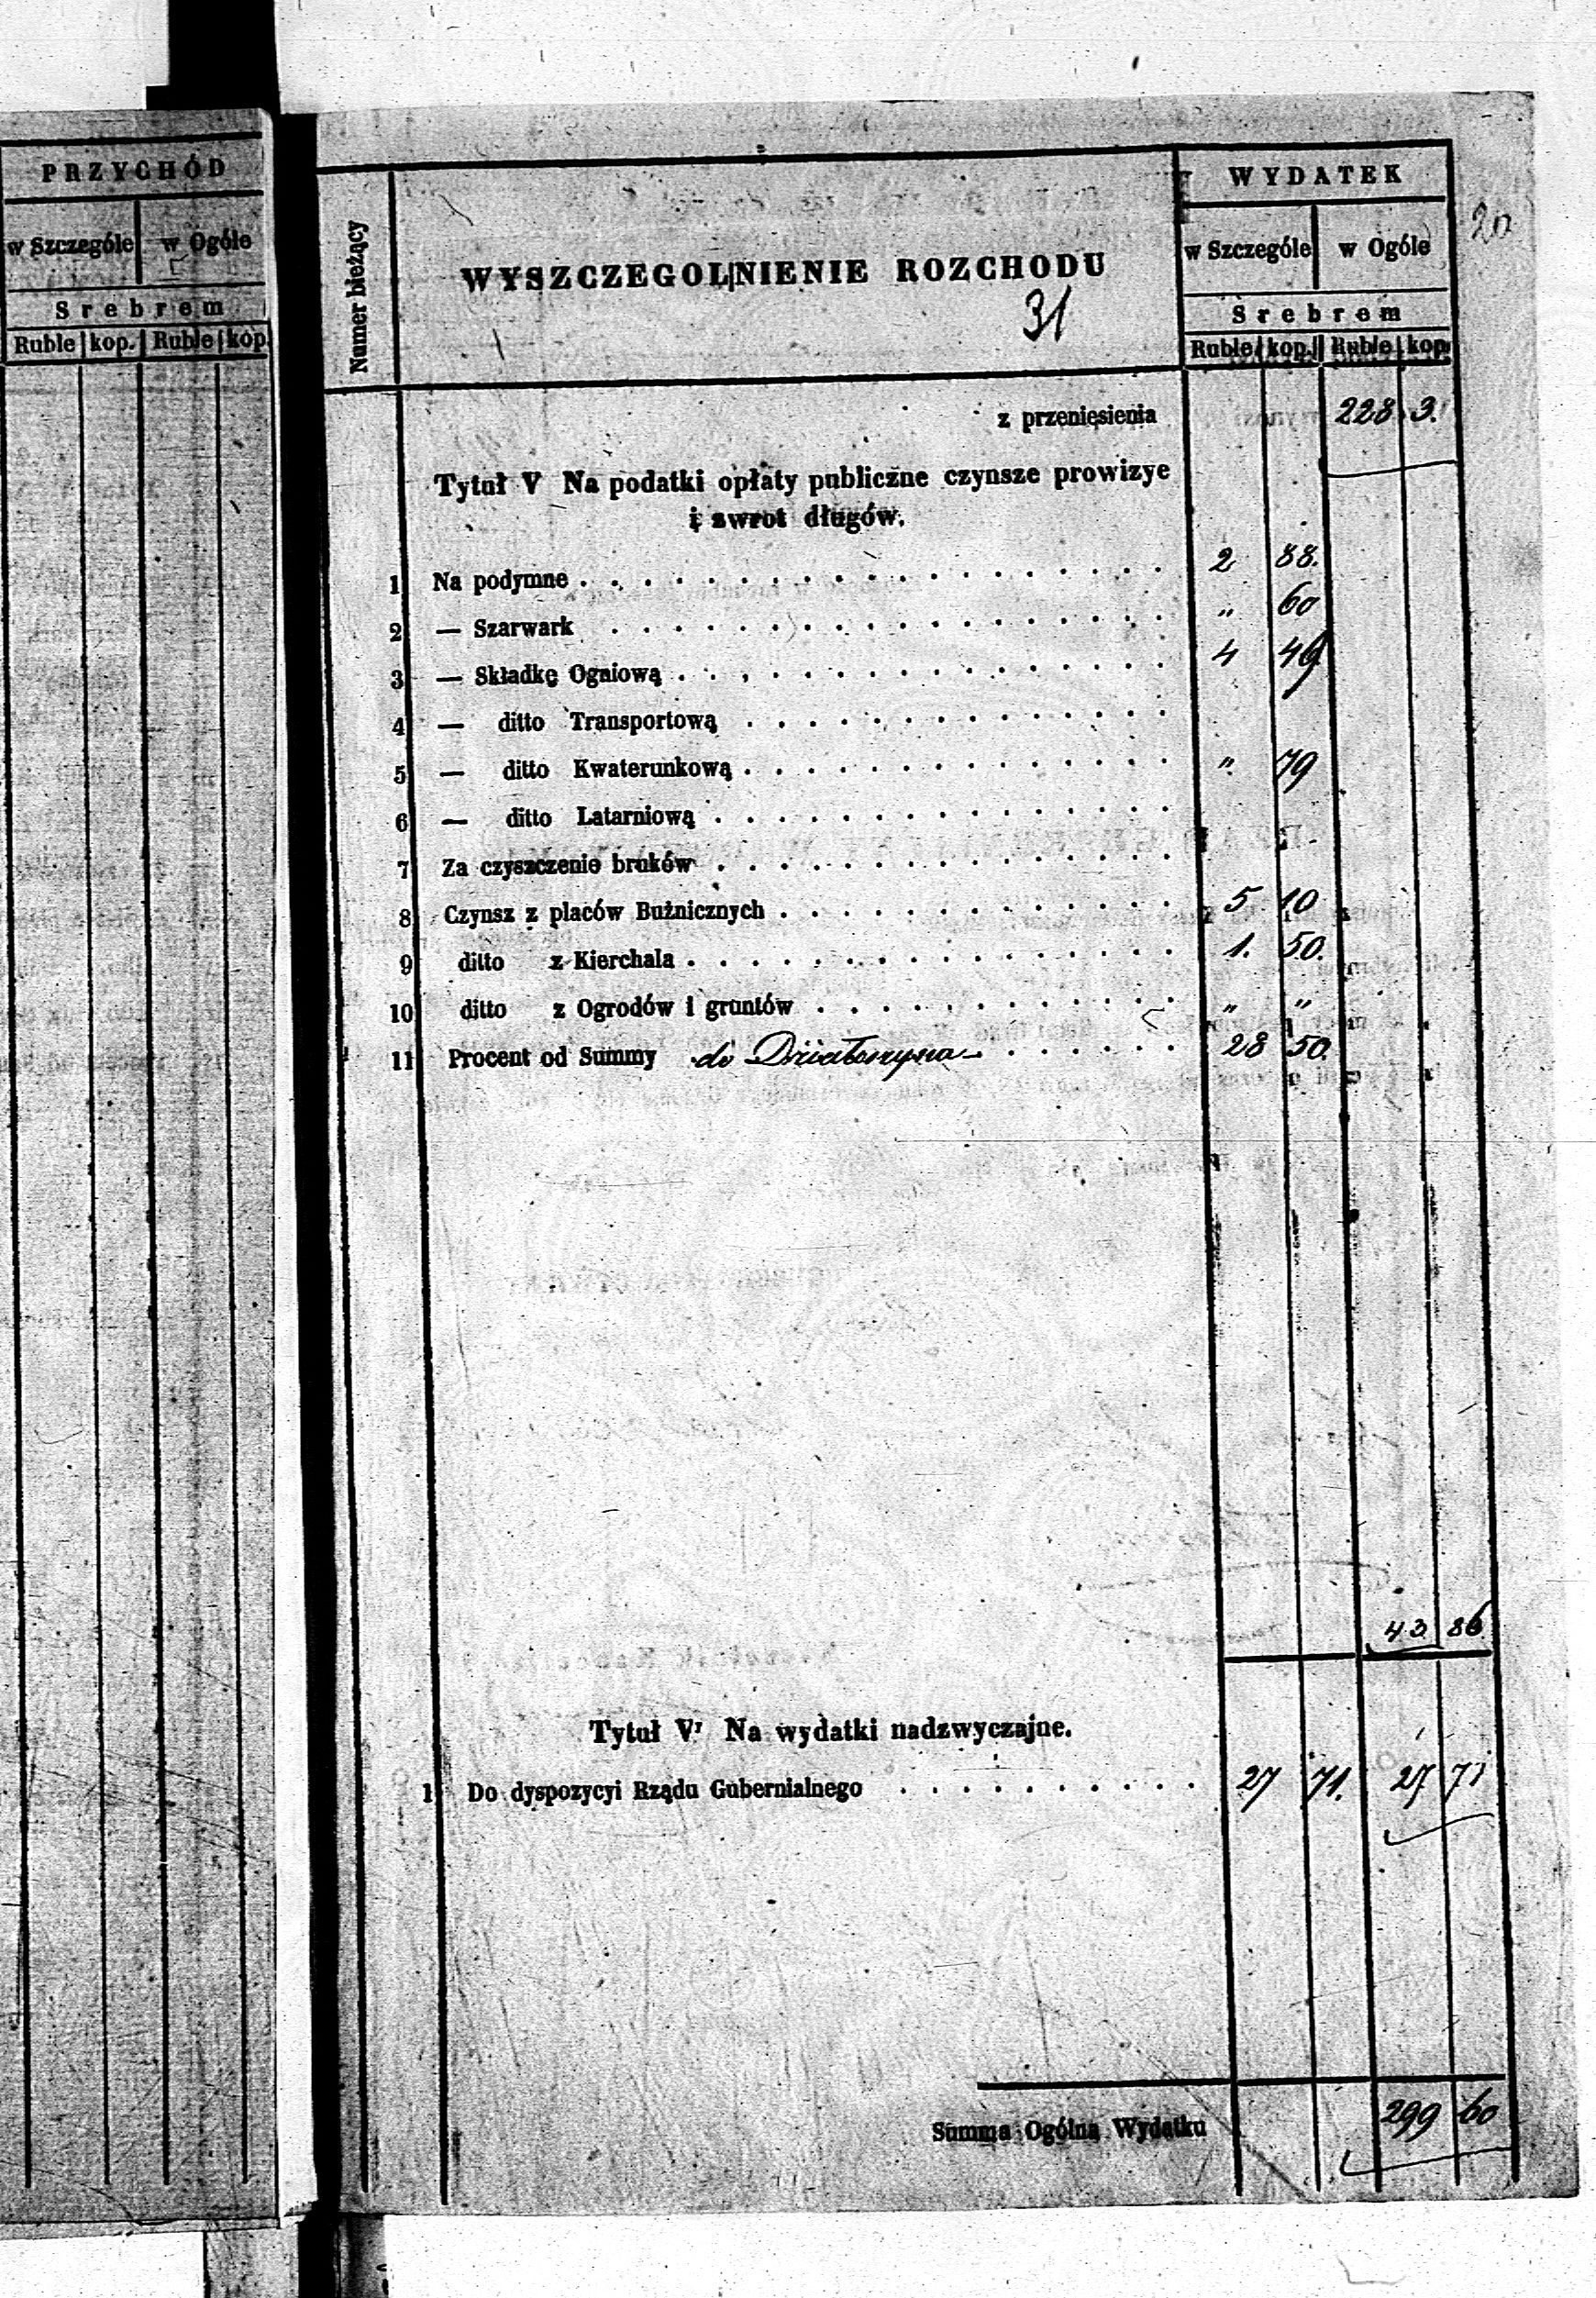 PRZYCHÓD
w Szczególe w Ogóle
Srebrem
Ruble kop. Ruble kop.
Numer bieżący
WYSZCZEGOLNIENIE ROZCHODU
31
WYDATEK
w Szczególe w Ogóle
Srebrem
Ruble kop. Ruble kop.
z przeniesienia 228 3.
Tytuł V Na podatki opłaty publiczne czynsze prowizye
i zwrot długów.
1 Na podymne . . . . . . 2 88.
2 — Szarwark . . . . . . „ 60
3 — Składkę Ogniową . . . . . . 4 49
4 — ditto Transportową . . . . . .
5 — ditto Kwaterunkową . . . . . . „ 79
6 — ditto Latarniową . . . . . .
7 Za czyszczenie bruków . . . . . .
8 Czynsz z placów Bużnicznych . . . . . . 5 10
9 ditto z Kierchala . . . . . . 1. 50.
10 ditto z Ogrodów i gruntów . . . . . . „ „
11 Procent od Summy do Działoszyna . . . . . . 28 50.
43 86
Tytuł VI Na wydatki nadzwyczajne.
1 Do dyspozycyi Rządu Gubernialnego . . . . . . 27 71. 27 71
Summa Ogólna Wydatku 299 60